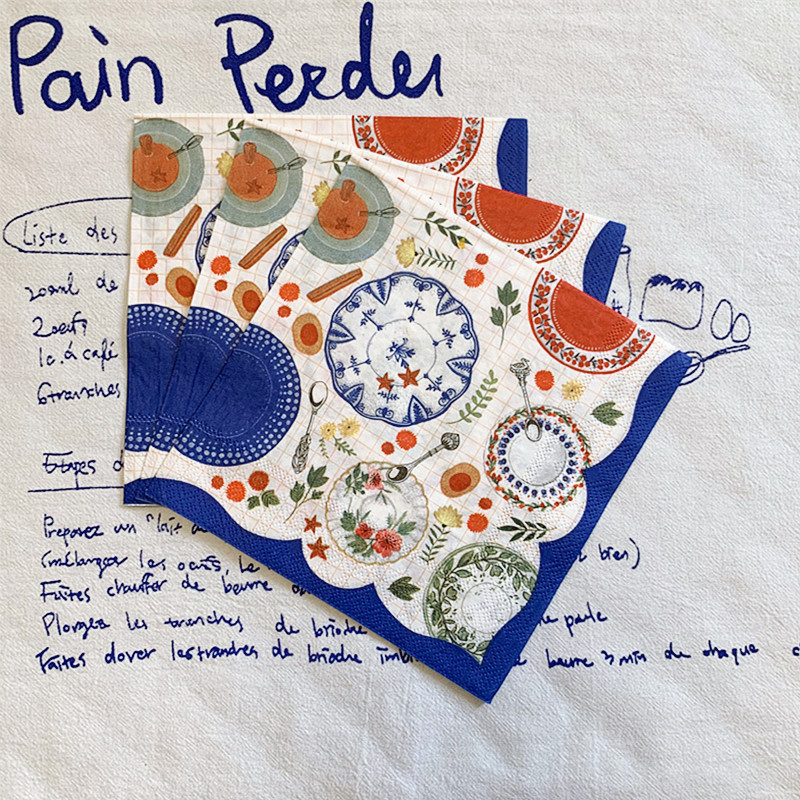 Pain Perdu
Liste des
200ml de
2 oeufs
1c. à café
6 tranches
Etapes d
Preparez un "lait de
(mélanger les oeufs, le bien)
Faites chauffer de beurre
Plongez les tranches de brioche
Faites dorer les tranches de brioche imbi beurre 3 min de chaque